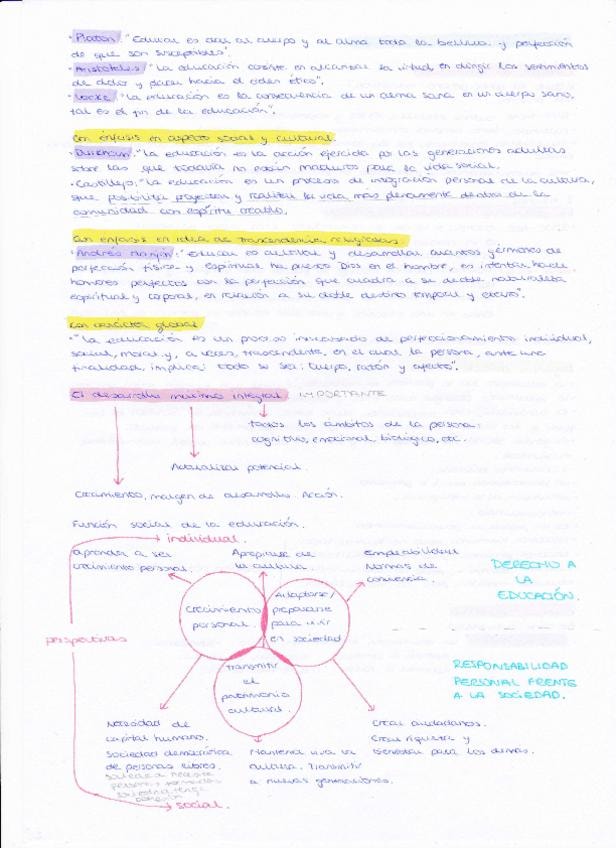 · Platón. "Educar es dar al cuerpo y al alma toda la belleza y perfección
de que son susceptibles".
· Aristóteles "La educación consiste en alcanzar la virtud en dirigir los sentimientos
de dolor y placer hacia el orden ético".
· Locke "La educación es la consecuencia de un alma sana en un cuerpo sano,
tal es el fin de la educación".
Con énfasis en aspecto social y cultural.
· Durkheim. "La educación es la acción ejercida por las generaciones adultas
sobre las que todavía no están maduras para la vida social.
· Castillejo. "La educación es un proceso de integración personal de la cultura,
que posibilita proyectar y realizar la vida más plenamente dentro de la
comunidad con espíritu creador.
Con énfasis en idea de trascendencia, religiosas.
· Andrés Manjón: "Educar es cultivar y desarrollar cuantos gérmenes de
perfección física y espiritual ha puesto Dios en el hombre, es intentar hacer
hombres perfectos con la perfección que cuadra a su doble naturaleza
espiritual y corporal, en relación a su doble destino temporal y eterno".
Con carácter global
· "La educación es un proceso inacabado de perfeccionamiento individual,
social, moral y, a veces, trascendente, en el cual la persona, ante una
finalidad, implica: todo su ser: cuerpo, razón y afecto".
El desarrollo máximo integral. IMPORTANTE
todos los ámbitos de la persona
cognitivo, emocional, biológico, etc.
Actualizar potencial.
Crecimiento, margen de desarrollo. Acción.
Función social de la educación.
individual.
aprender a ser
crecimiento personal.
Apropiarse de
la cultura.
Empleabilidad
Normas de
convivencia.
DERECHO A
LA
EDUCACIÓN.
Crecimiento
personal.
Adaptarse/
prepararse
para vivir
en sociedad
perspectivas
transmitir
el
patrimonio
cultural.
RESPONSABILIDAD
PERSONAL FRENTE
A LA SOCIEDAD.
Necesidad de
capital humano.
sociedad democrática
de personas libres.
sociedad necesita
personas formadas
sociedad tenga
cohesión
Mantener viva la
cultura. Transmitir
a nuevas generaciones.
Crear ciudadanos.
Crear riqueza y
bienestar para los demás.
social.